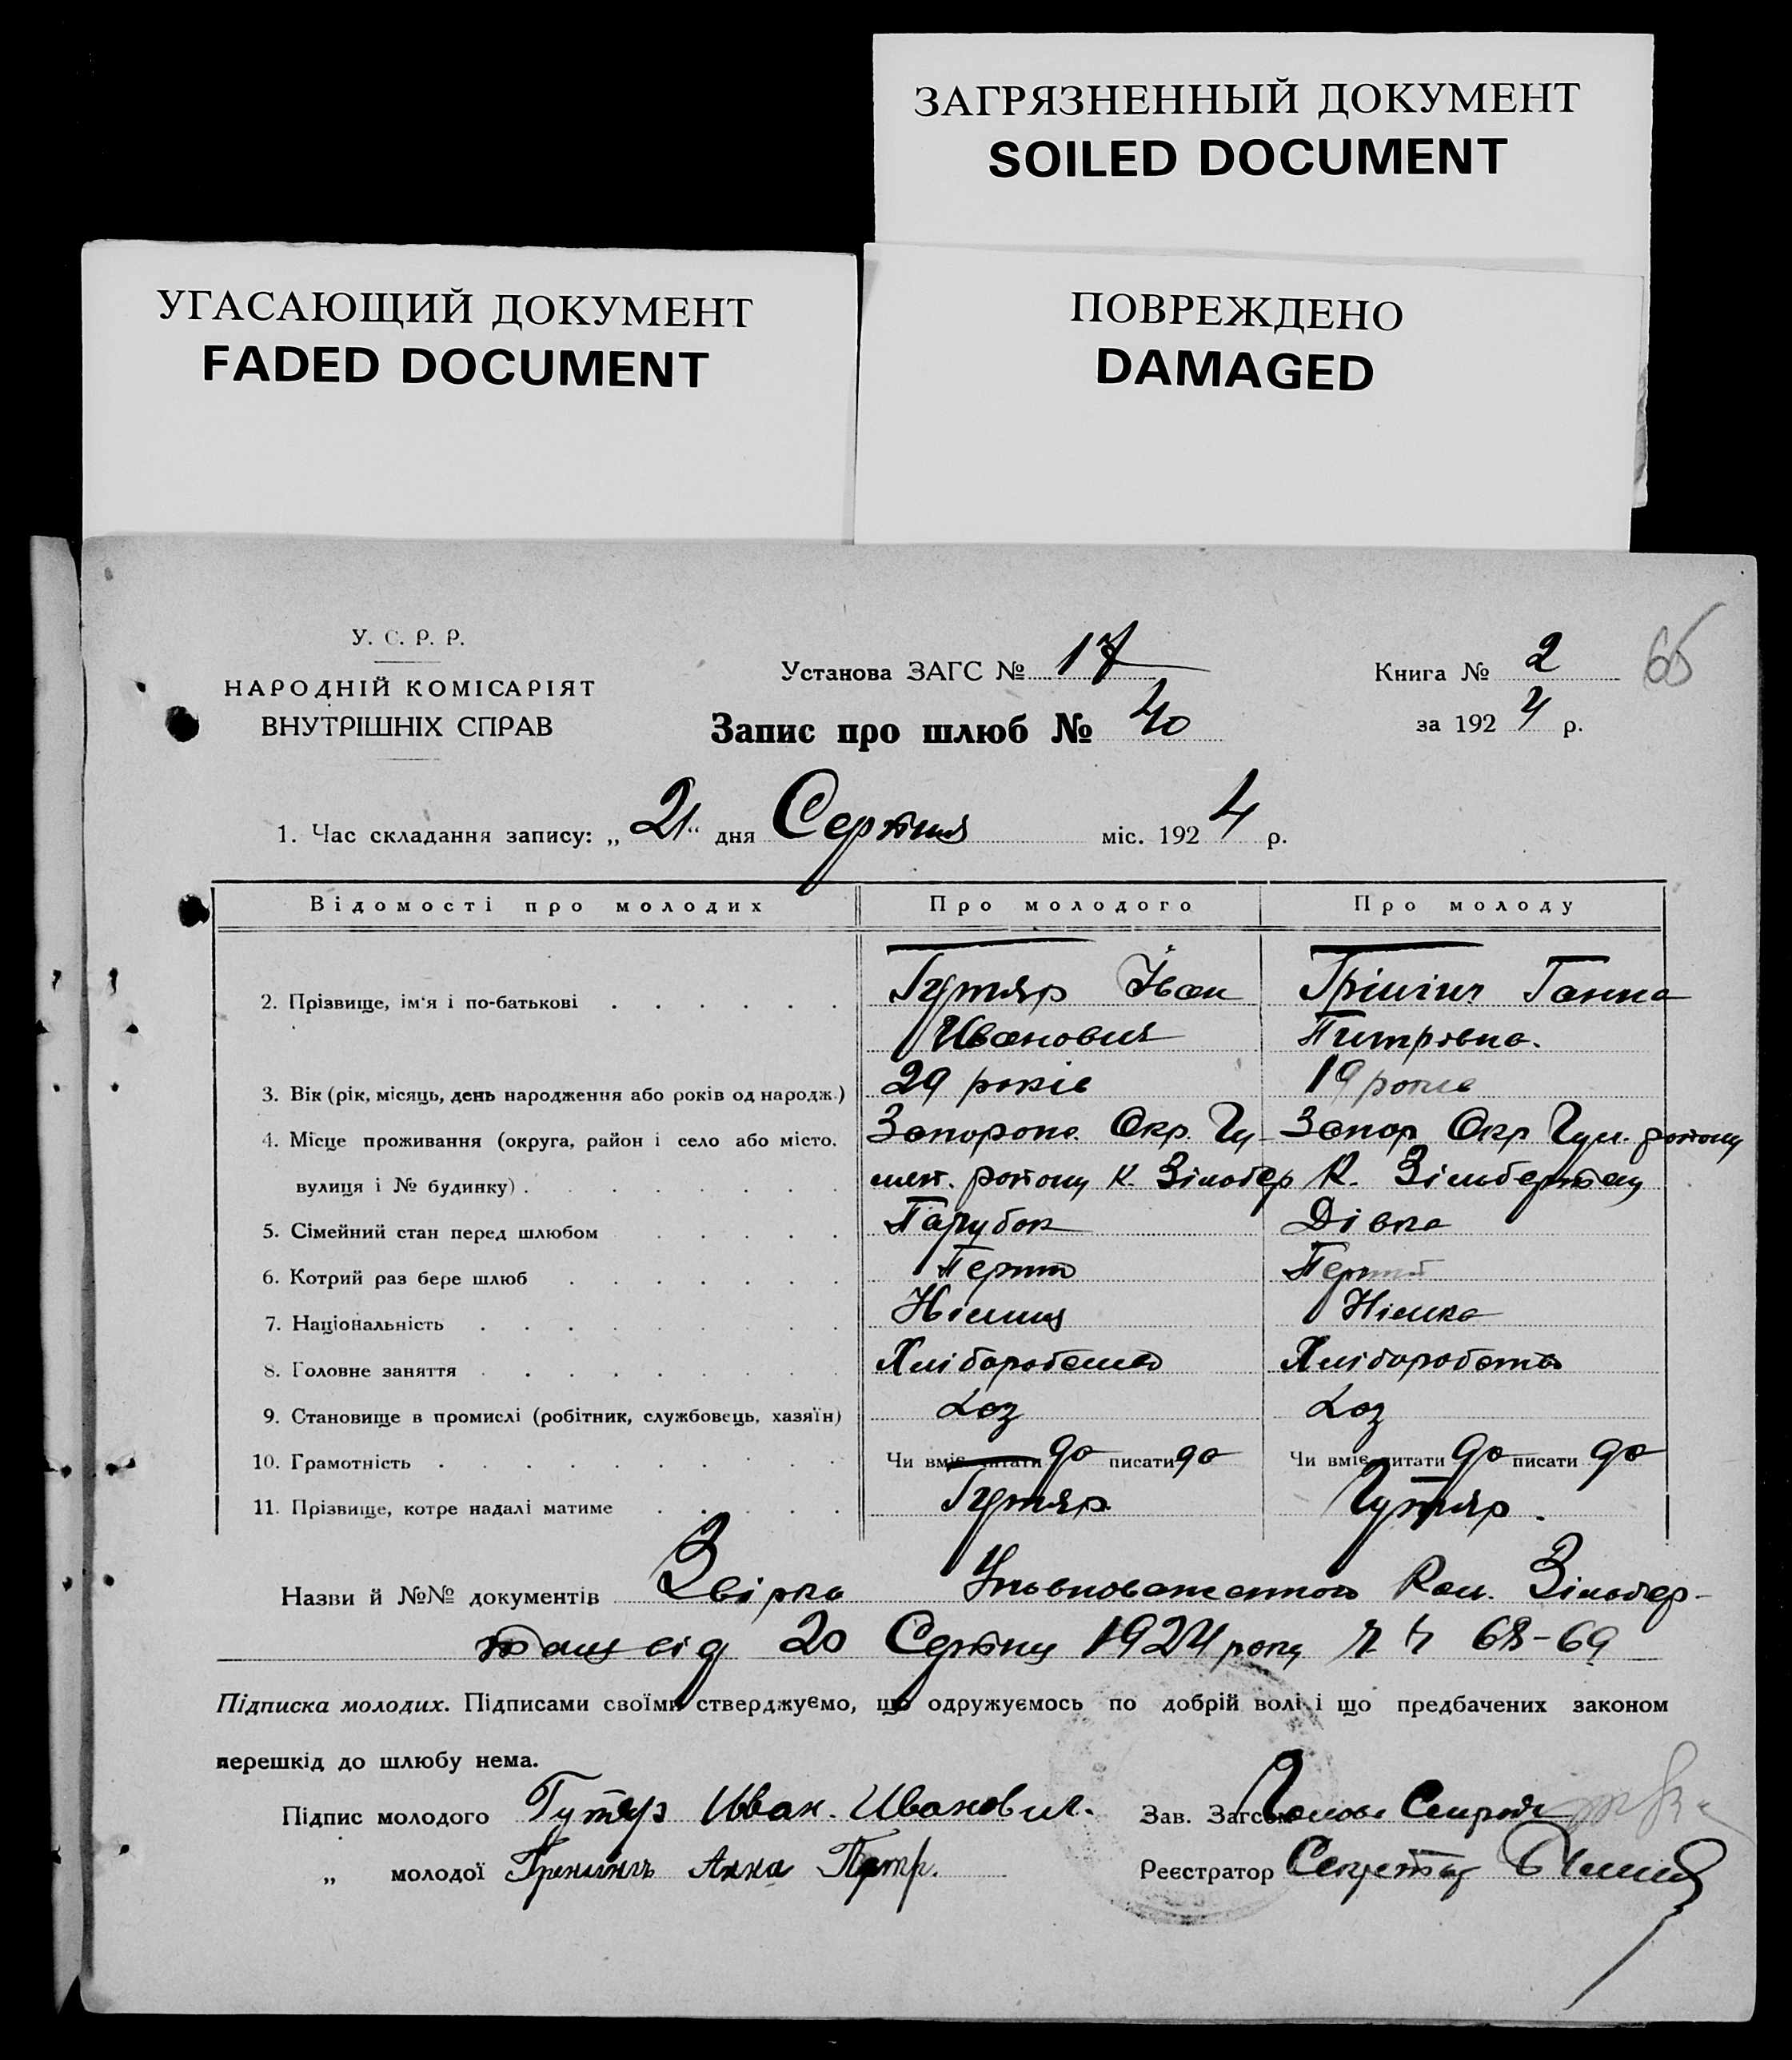 ЗАГРЯЗНЕННЫЙ ДОКУМЕНТ
SOILED DOCUMENT
УГАСАЮЩИЙ ДОКУМЕНТ
FADED DOCUMENT
ПОВРЕЖДЕНО
DAMAGED
У. С. Р. Р.
НАРОДНІЙ КОМІСАРІЯТ
ВНУТРІШНІХ СПРАВ
Установа ЗАГС № 17
Книга № 2
Запис про шлюб № 40
за 1924 р.
1. Час складання запису: „21“ дня Серпня міс. 1924 р.
Відомості про молодих Про молодого Про молоду
2. Прізвище, ім'я і по-батькові Гутяр Іван Ганна
Иванович Питрівна.
3. Вік (рік, місяць, день народження або років од народж.) 29 років 19 років
4. Місце проживання (округа, район і село або місто, Запорож. Окр. Гу- Запор Окр Гул. району
вулиця і № будинку) району К. Зільбер К. Зільберталу
5. Сімейний стан перед шлюбом Парубок Дівка
6. Котрий раз бере шлюб Перший
7. Національність Німець Німка
8. Головне заняття Хлібороб
9. Становище в промислі (робітник, службовець, хазяїн) Хаз Хаз
10. Грамотність Чи вміє читати да писати да Чи вміє читати да писати да
11. Прізвище, котре надалі матиме Гутяр. Гутяр.
Назви й №№ документів Зільбер-
від 20 Серпня 1924 року 68-69
Підписка молодих. Підписами своїми стверджуємо, що одружуємось по добрій волі і що предбачених законом
перешкід до шлюбу нема.
Підпис молодого Гутяр Иван Иванович. Зав. Загсом Голова
„ молодої Анна Петр. Реєстратор Секретар